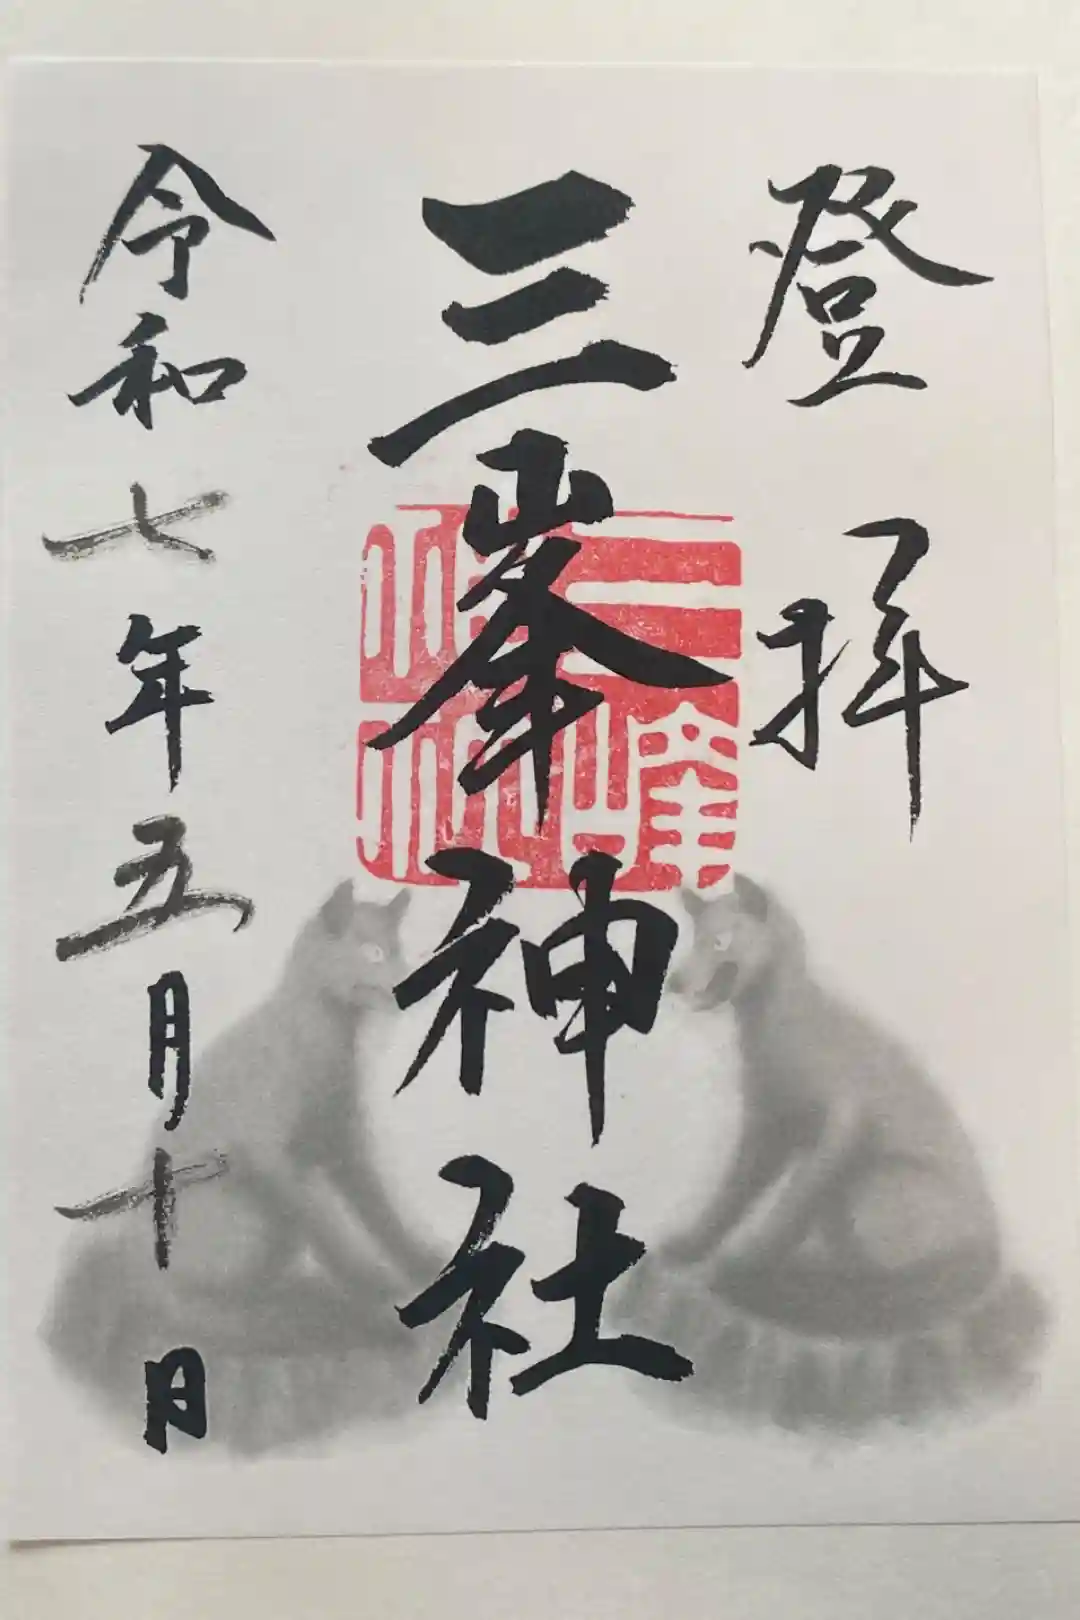 登拝
三峯神社
三峯神社
令和七年五月十日